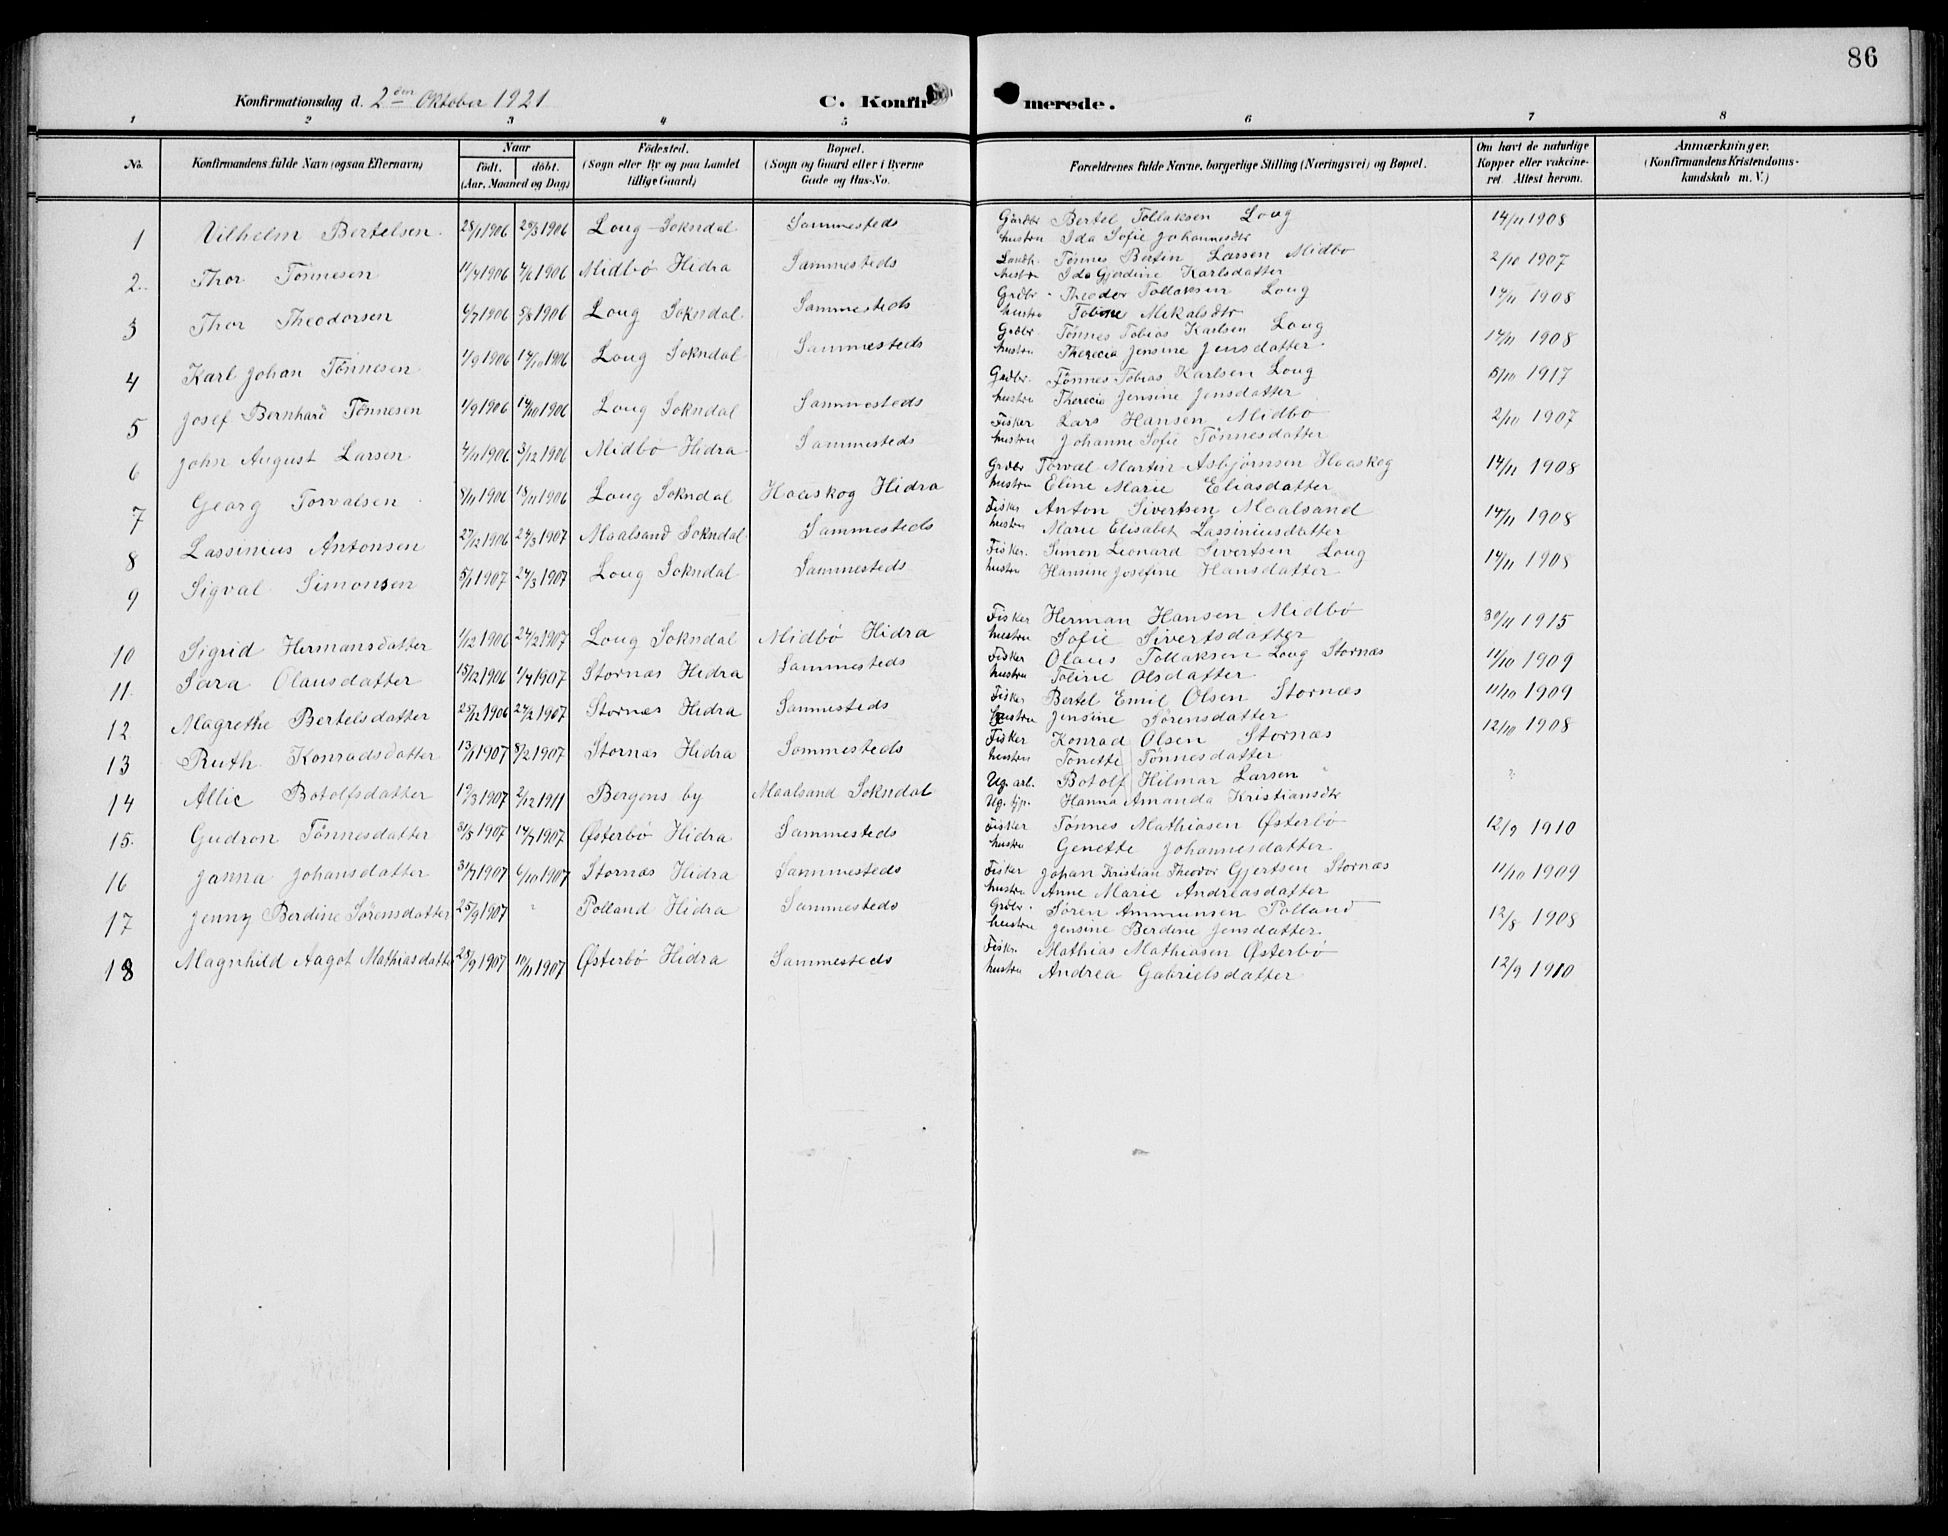 86
Konfirmationsdag d. 2den Oktober 1921 C. Konfir merede.
1 2 3 4 5 6 7 8
No. Konfirmandens fulde Navn (ogsaa Efternavn) Naar födt. döbt. (Aar, Maaned og Dag) Födested. (Sogn eller By og paa Landet tillige Gaard) Bopæl. (Sogn og Gaard eller i Byerne Gade og Hus-No. Forældrenes fulde Navne, borgerlige Stilling (Næringsvei) og Bopæl. Om havt de naturlige Kopper eller vakcineret. Attest herom. Anmærkninger. (Konfirmandens Kristendomskundskab m. V.)
1 Vilhelm Bertelsen 28/1 1906 29/3 1906 Loug Sokndal Sammesteds Gårdbr Bertel Tollaksen Loug 14/11 1908
hustru Ida Sofie Johannesdtr
2 Thor Tönnesen 11/4 1906 4/6 1906 Midbö Hidra Sammesteds Landh. Tönnes Bertin Larsen Midbö 2/10 1907
hustru Ida Gjerdine Karlsdatter
3 Thor Theodorsen 6/7 1906 5/8 1906 Loug Sokndal Sammesteds Grdbr. Theodor Tollaksen Loug 14/11 1908
hustru Tobine Mikalsdtr
4 Karl Johan Tönnesen 1/9 1906 14/10 1906 Loug Sokndal Sammesteds Grdbr. Tönnes Tobias Karlsen Loug 14/11 1908
hustru Therecia Jensine Jensdatter
5 Josef Bernhard Tönnesen 1/9 1906 14/10 1906 Loug Sokndal Sammesteds Grdbr. Tönnes Tobias Karlsen Loug 5/10 1917
hustru Therecia Jensine Jensdatter
6 John August Larsen 4/11 1906 3/12 1906 Midbö Hidra Sammesteds Fisker Lars Hansen Midbö 2/10 1907
hustru Johanne Sofie Tönnesdatter
7 Georg Torvalsen 8/11 1906 18/11 1906 Loug Sokndal Haaskog Hidra Grdbr Torval Martin Asbjörnsen Haaskog 14/11 1908
hustru Eline Marie Eliasdatter
8 Lassinius Antonsen 27/12 1906 24/3 1907 Maalsand Sokndal Sammesteds Fisker Anton Sivertsen Maalsand 14/11 1908
hustru Marie Elisabet Lassiniusdatter
9 Sigval Simonsen 5/1 1907 24/3 1907 Loug Sokndal Sammesteds Fisker. Simon Leonard Sivertsen Loug 14/11 1908
hustru Hansine Josefine Hansdatter
10 Sigrid Hermansdatter 1/12 1906 24/2 1907 Loug Sokndal Midbö Hidra Fisker Herman Hansen Midbö 30/11 1915
hustru Sofie Sivertsdatter
11. Sara Olausdatter 15/12 1906 1/4 1907 Stornæs Hidra Sammesteds Fisker Olaus Tollaksen Loug Stornæs 11/10 1909
hustru Toline Olsdatter
12 Magrethe Bertelsdatter 25/12 1906 24/2 1907 Stornæs Hidra Sammesteds Fisker Bertel Emil Olsen Stornæs 11/10 1909
hustru Jensine Sörensdatter
13 Ruth Konradsdatter 13/1 1907 8/2 1907 Stornæs Hidra Sammesteds Fisker Konrad Olsen Stornæs 12/10 1908
hustru Tonette Tönnesdatter
14 Allic Botolfsdatter 19/3 1907 2/12 1911 Bergens by Maalsand Sokndal Ug. arb. Botolf Hilmar Larsen
Ug. tjp. Hanna Amanda Kristiansdtr
15. Gudron Tönnesdatter 31/5 1907 14/7 1907 Østerbö Hidra Sammesteds Fisker Tönnes Mathiasen Østerbö 12/9 1910
hustru Genette Johannesdatter
16 Janna Johansdatter 31/7 1907 6/10 1907 Stornæs Hidra Sammesteds Fisker Johan Kristian Theodor Gjertsen Stornæs 11/10 1909
hustru Anne Marie Andreasdatter
17 Jenny Berdine Sörensdatter 25/9 1907 " Polland Hidra Sammesteds Grdbr. Sören Ammunsen Polland 12/8 1908
hustru Jensine Berdine Jensdatter
18 Magnhild Aagot Mathiasdatter 28/9 1907 10/11 1907 Østerbö Hidra Sammesteds Fisker. Mathias Mathiasen Østerbö 12/9 1910
hustru Andrea Gabrielsdatter